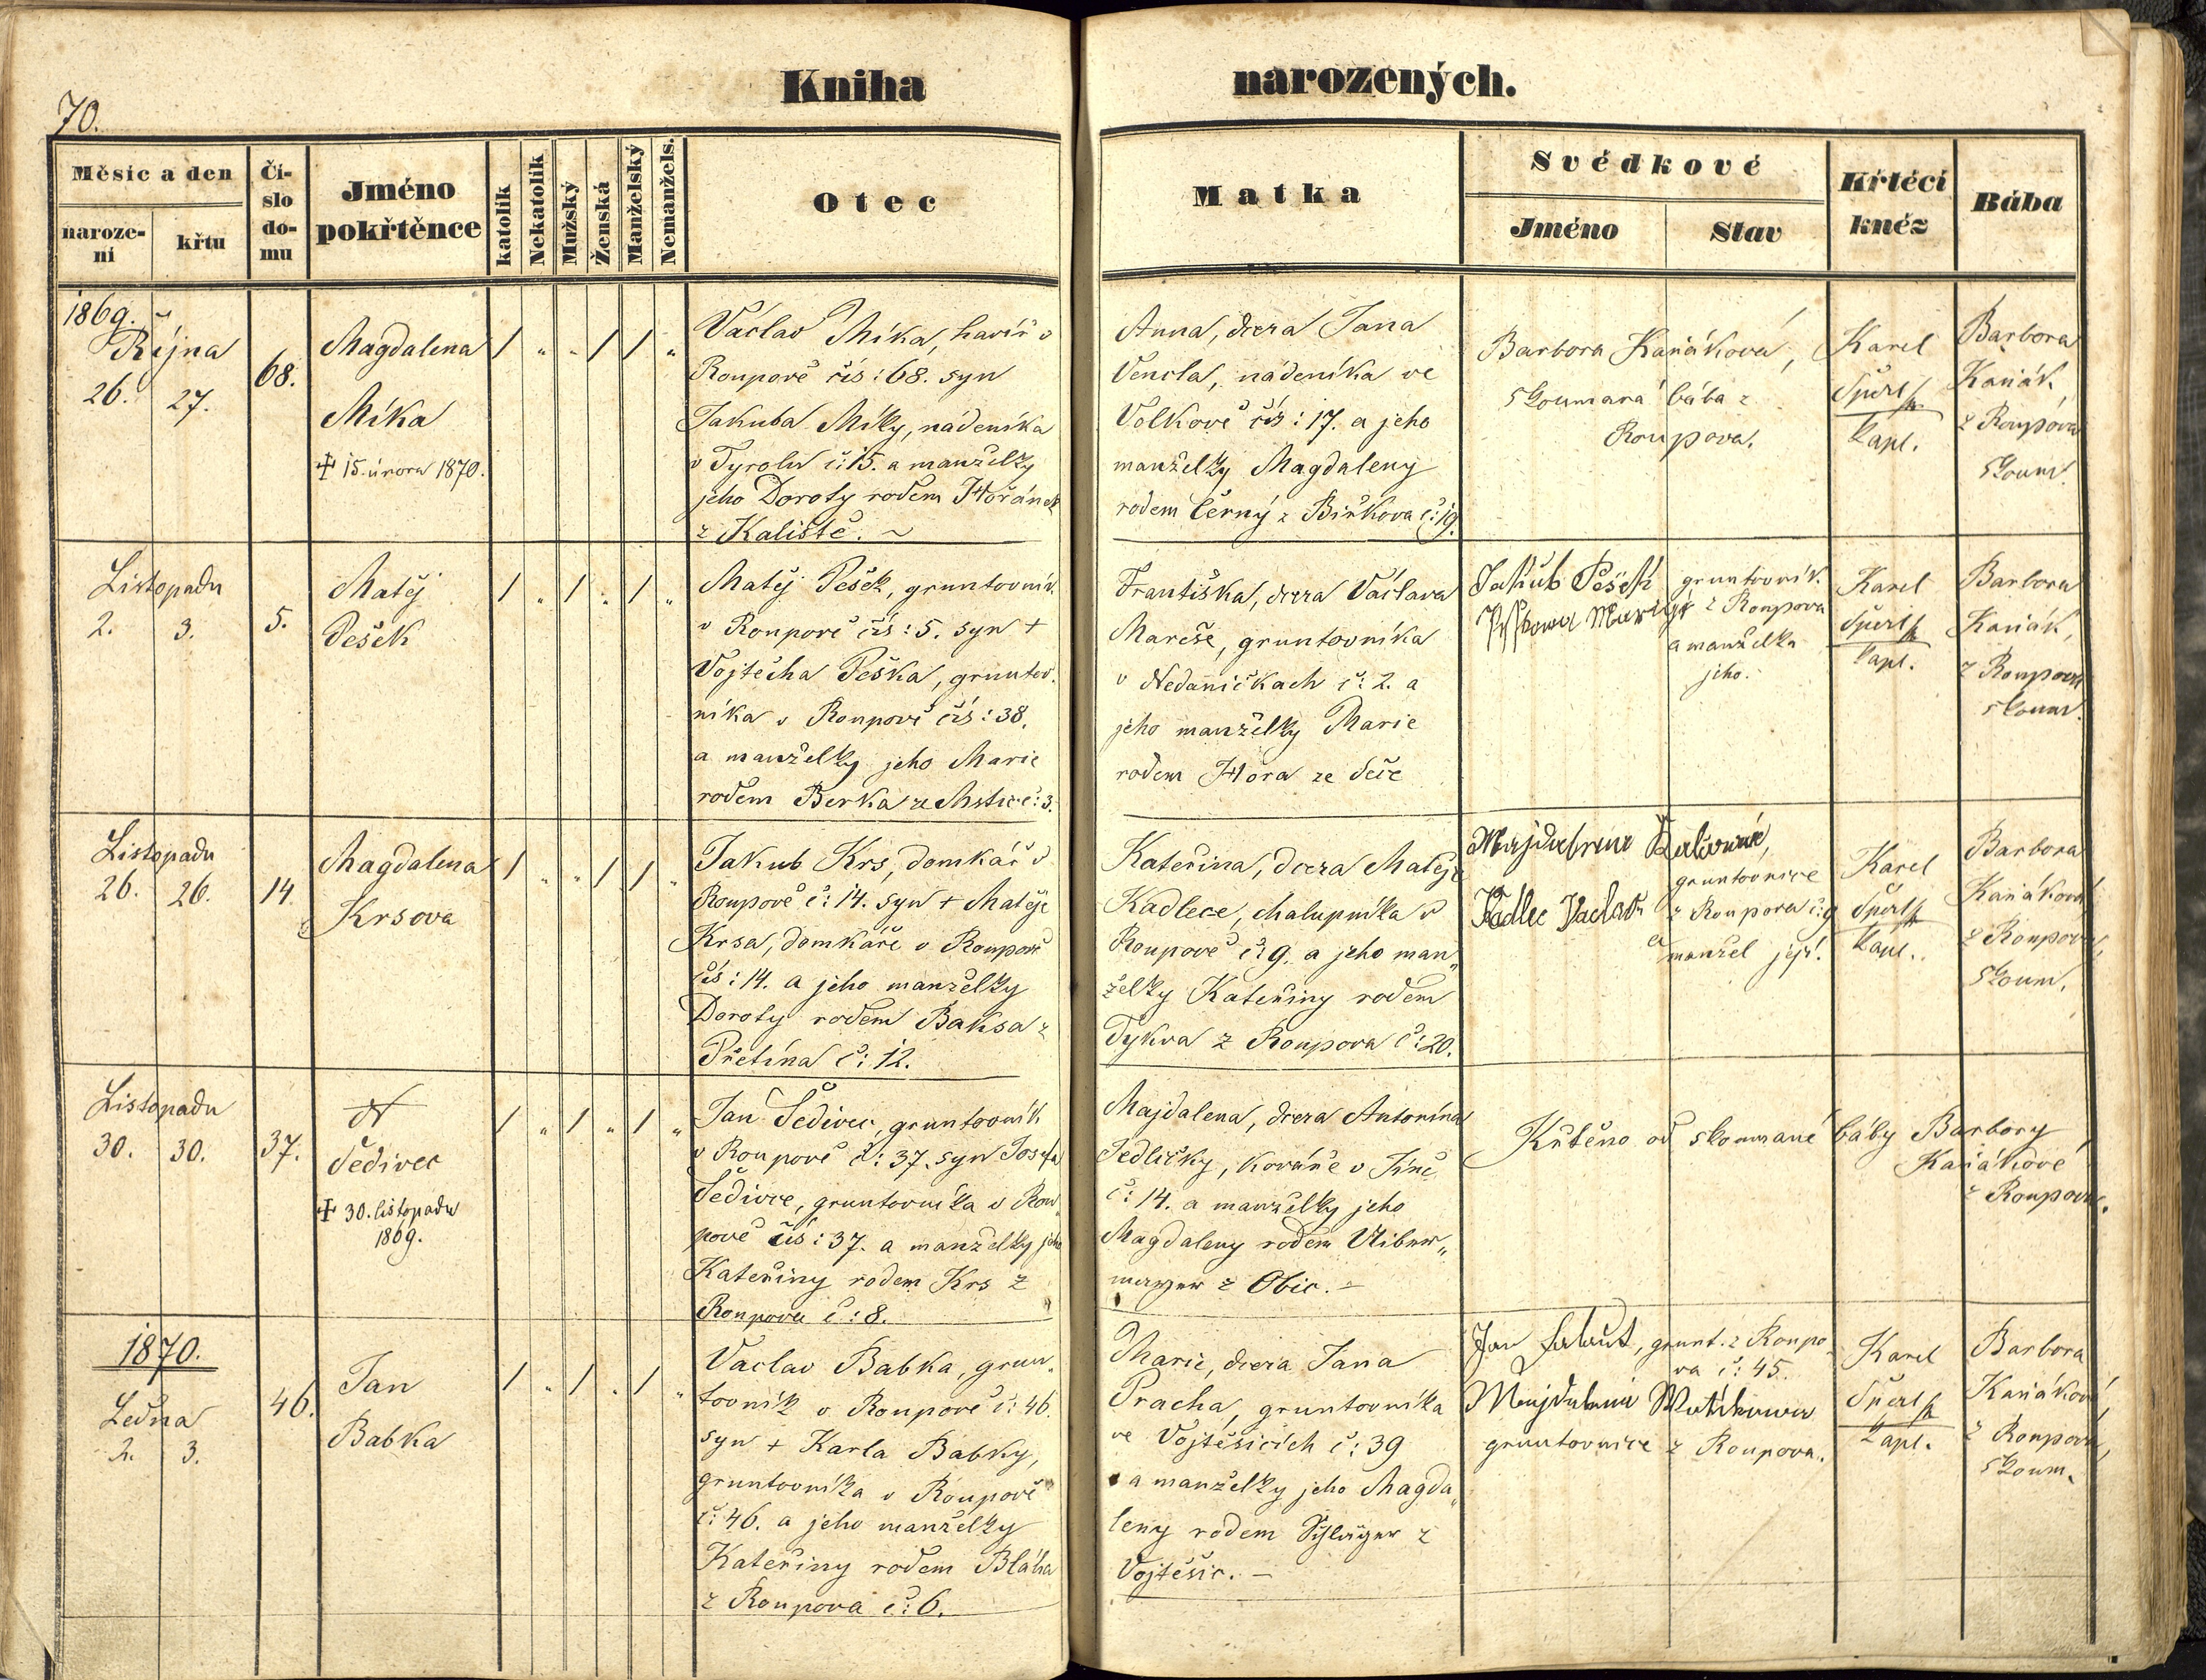 Kniha narozených.
70.
Měsíc a den
naroze-
ní
křtu
Čí-
slo
do-
mu
Jméno
pokřtěnce
katolík
Nekatolík
Mužský
Ženská
Manželský
Nemanžels.
Otec
Matka
Svědkové
Jméno
Stav
Křtěcí
kněz
Bába
1869.
Října
26. 27.
68.
Magdalena
Míka
✝ 15. února 1870.
/ " " / / "
Vaclav Míka, havíř v
Roupově čís: 68. syn
Jakuba Míky, nádeníka
v Tyrolu č: 15. a manželky
jeho Doroty rodem Hořánek
z Kaliště. ~
Anna, dcera Jana
Vencla, nádeníka ve
Volkově čís: 17. a jeho
manželky Magdaleny
rodem Černý z Biřkova č: 19.
Barbora Kaňáková,
zkoumaná bába z
Roupova.
Karel
Šperl
kapl.
Barbora
Kaňák
z Roupova
zkoum.
Listopadu
2. 3.
5.
Matěj
Pešek
/ " / " / "
Matěj Pešek, gruntovník
v Roupově čís: 5. syn +
Vojtěcha Peška, gruntov-
níka v Roupově čís: 38.
a manželky jeho Marie
rodem Berka ze Mstic č: 3.
Františka, dcera Václava
Mareše, gruntovníka
v Nedaničkach č: 2. a
jeho manželky Marie
rodem Hora ze Seče
Jakub Pešek
gruntovník
z Roupova
a manželka
jeho.
Karel
Šperl
kapl.
Barbora
Kaňák,
z Roupova
zkoum.
Listopadu
26. 26.
14.
Magdalena
Krsova
/ " " / / "
Jakub Krs, domkář v
Roupově č: 14. syn + Matěje
Krsa, domkáře v Roupově
čís: 14. a jeho manželky
Doroty rodem Baksa z
Přetína č: 12.
Kateřina, dcera Matěje
Kadlece, chalupníka v
Roupově č: 9. a jeho man„
želky Kateřiny rodem
Tykva z Roupova č: 20.
gruntovnice
Kadlec Vaclav
z Roupova č: 9
a
manžel její.
Karel
Šperl
kapl.
Barbora
Kaňáková
z Roupova,
zkoum.
Listopadu
30. 30.
37.
N
Šedivec
✝ 30. listopadu
1869.
/ " / " / "
Jan Šedivec, gruntovník
v Roupově č: 37. syn Josefa
Šedivce, gruntovníka v Rou„
pově čís: 37. a manželky jeho
Kateřiny rodem Krs z
Roupova č: 8.
Majdalena, dcera Antonína
Jedličky, kováře v Jíně
č: 14. a manželky jeho
Magdaleny rodem Uiber„
mayer z Obic. –
Křtěno od zkoumané báby Barbory
Kaňákové
z Roupova.
1870.
Ledna
2. 3.
46.
Jan
Babka
/ " / " / "
Vaclav Babka, grun„
tovník v Roupově č: 46.
syn + Karla Babky,
gruntovníka v Roupově
č: 46. a jeho manželky
Kateřiny rodem Bláha
z Roupova č: 6.
Marie, dcera Jana
Pracha, gruntovníka
ve Vojtěšicích č: 39
a manželky jeho Magda„
leny rodem Schlöger z
Vojtěšic. –
Jan
grunt. z Roupo„
va č: 45.
gruntovnice z Roupova.
Karel
Šperl
kapl.
Barbora
Kaňáková,
z Roupova,
zkoum.